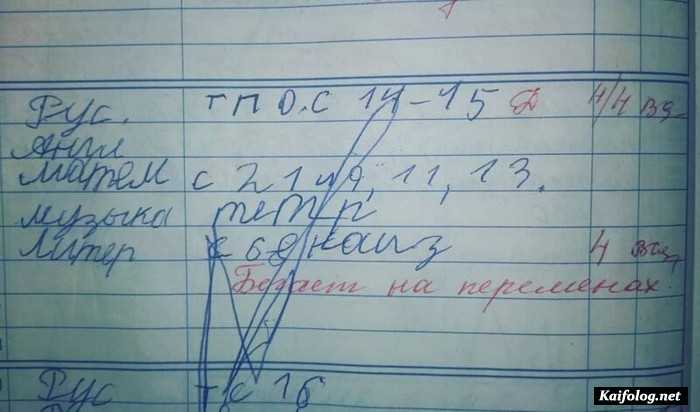 Рус. тпо.с 14-15 Д 4/4 Вя
Англ
Матем с 21 №9, 11, 13.
музыка тетр
Литер с 68 наиз 4 Вя
Бегает на переменах.
Рус тс 16
Kaifolog.net